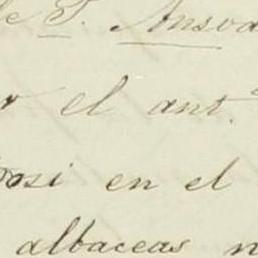 de S. Ansoa
el ant.
osi en el
albaceas